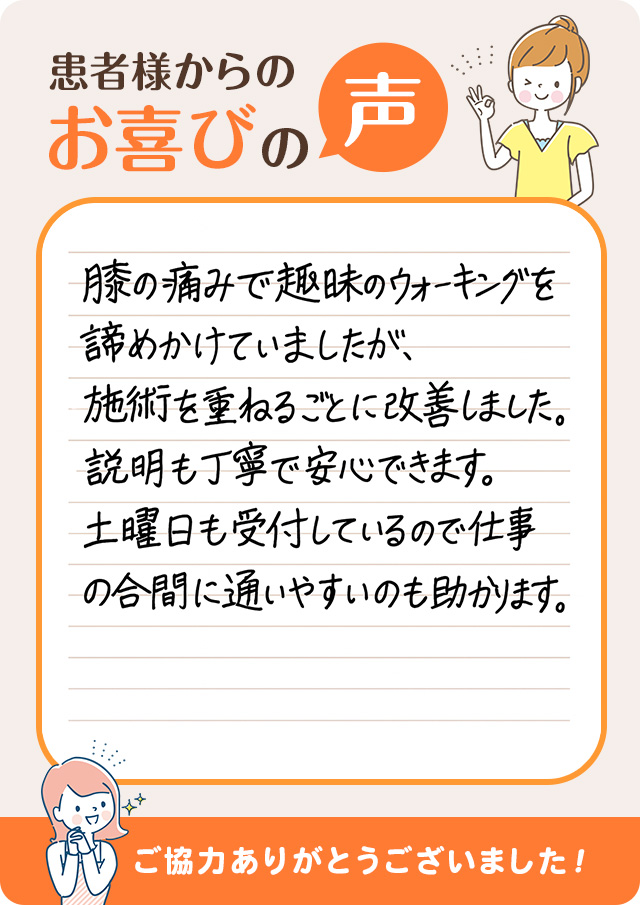 患者様からの
お喜びの声
膝の痛みで趣味のウォーキングを
諦めかけていましたが、
施術を重ねるごとに改善しました。
説明も丁寧で安心できます。
土曜日も受付しているので仕事
の合間に通いやすいのも助かります。
ご協力ありがとうございました!